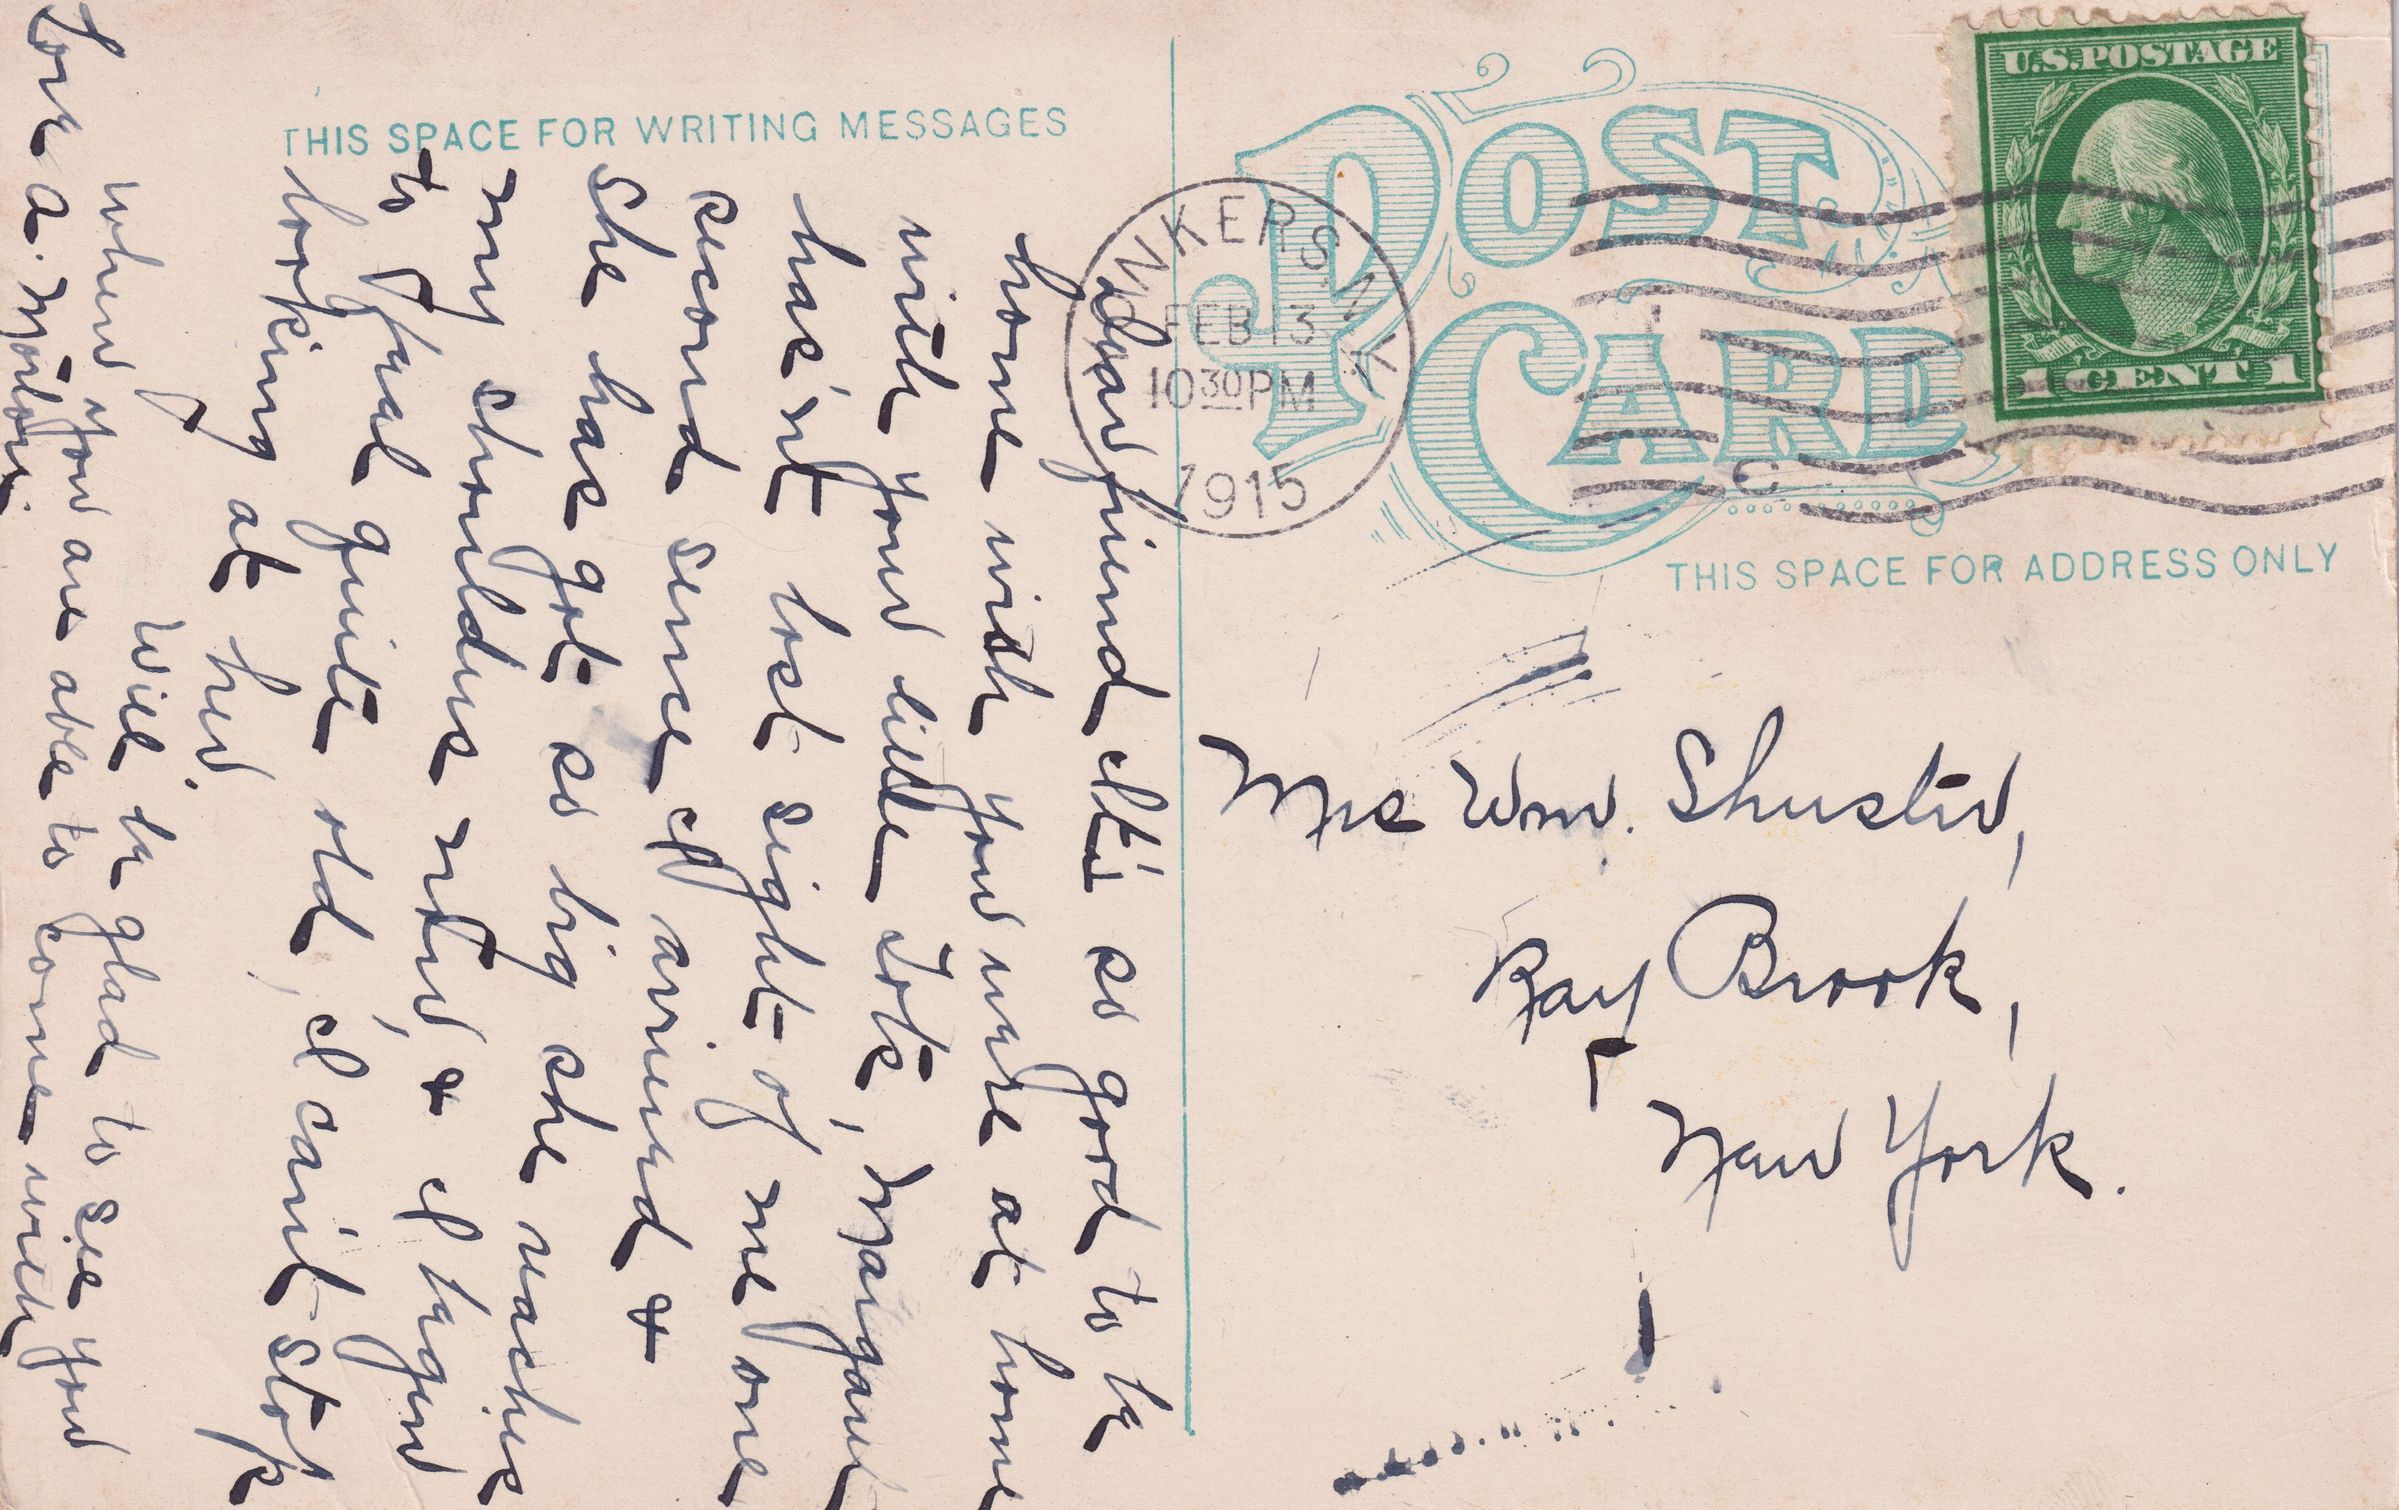 THIS SPACE FOR WRITING MESSAGES
Dear friend, It's so good to be
home wish you were at home
with your little Tots, Margaret
has'nt lost sight of me one
second sence I arrived &
She has got so big she reaches
my shoulders now, & I begin
to feal quite old, I cant stop
looking at her.
Will be glad to see you
when you are able to come with
love a. Motore.
POST CARD
YONKERS N.Y.
FEB 13
10 30 PM
1915
U.S. POSTAGE
1 CENT 1
THIS SPACE FOR ADDRESS ONLY
Mrs Wm. Shuster,
Ray Brook,
New York.